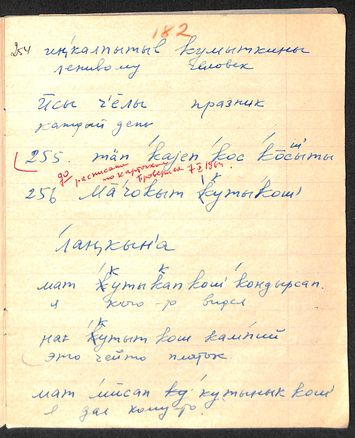 182
254 иңкалпытыв кумыткины
ленивому человек
йсы ч'ёлы празник
каждый день
255. тäп кајеп кос кöсыты ш
до расписан
по карточкам
Проверил 7 I 1964.
256 мāчоқыт к кутыкош
лаңкын'а
мат к кутыкап кош кондырсап.
я кого-то видел
нан к кутыт кош кампий
это чейто платок
мат мисап кутынык кош
я дал кому-то.